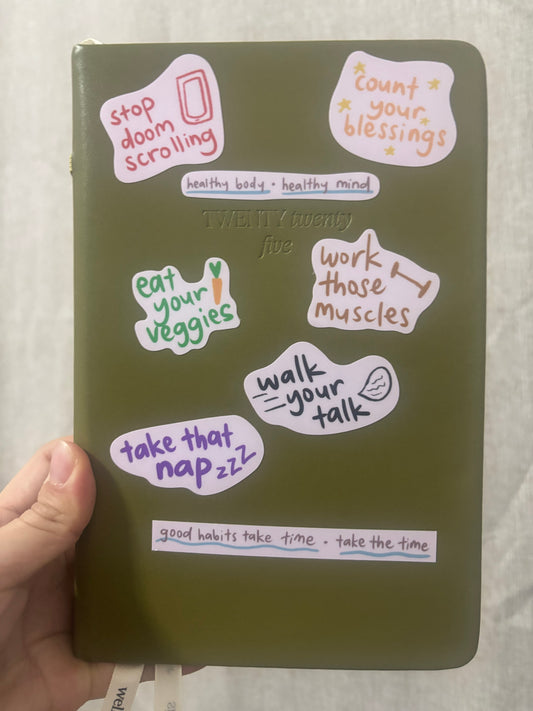 stop
doom
scrolling
count
your
blessings
healthy body · healthy mind
TWENTY twenty
five
eat
your
veggies
work
those
muscles
walk
your
talk
take that
nap zzz
good habits take time · take the time